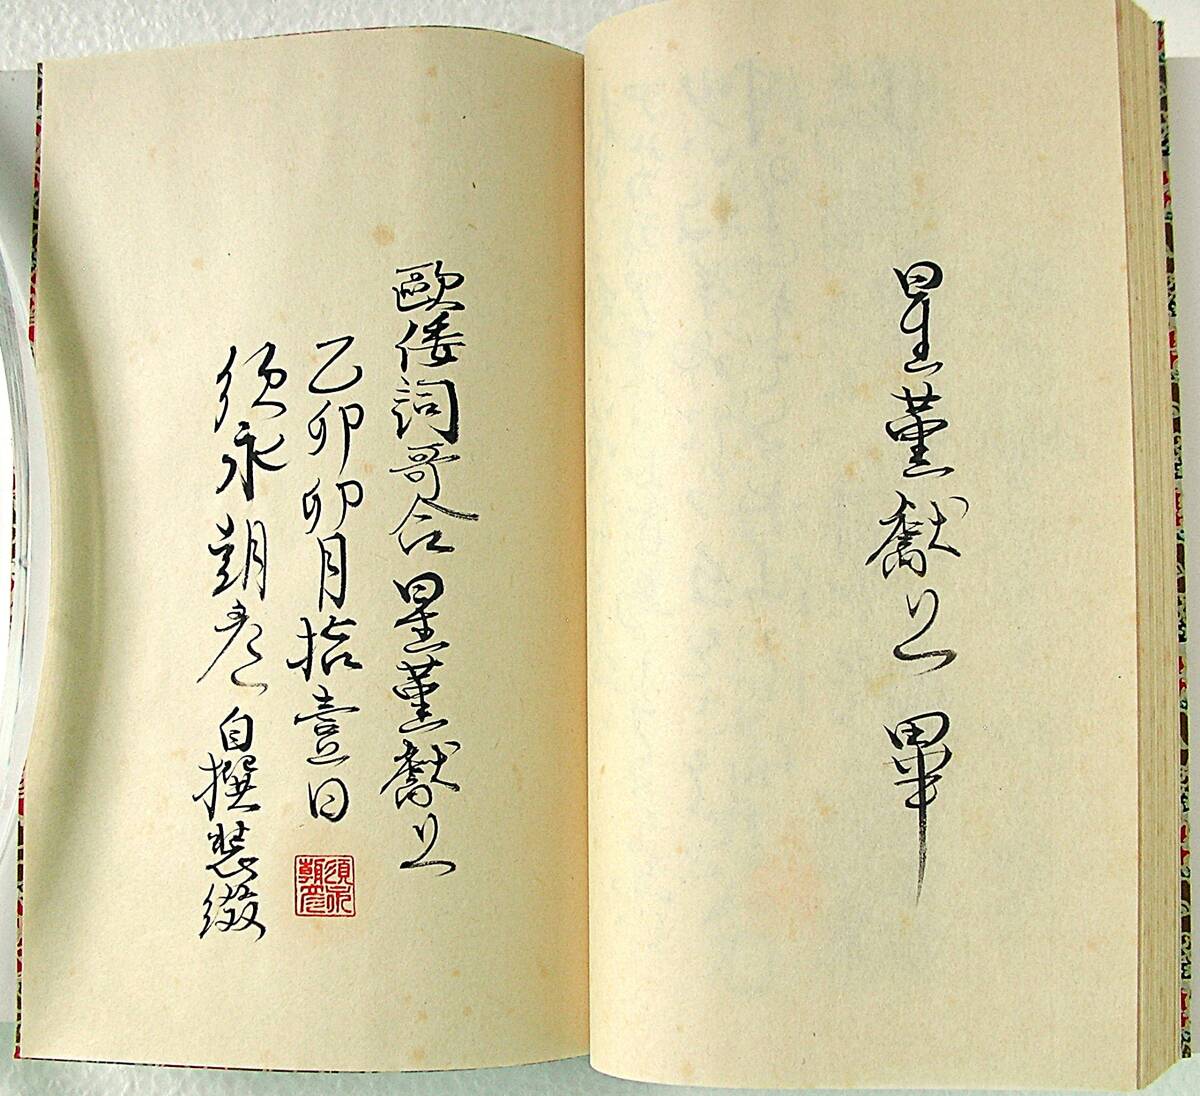 星菫獻上 畢
歐倭詞哥合 星菫獻上
乙卯卯月拾壹日
須永朝彦 自撰裝綴
須永朝彦